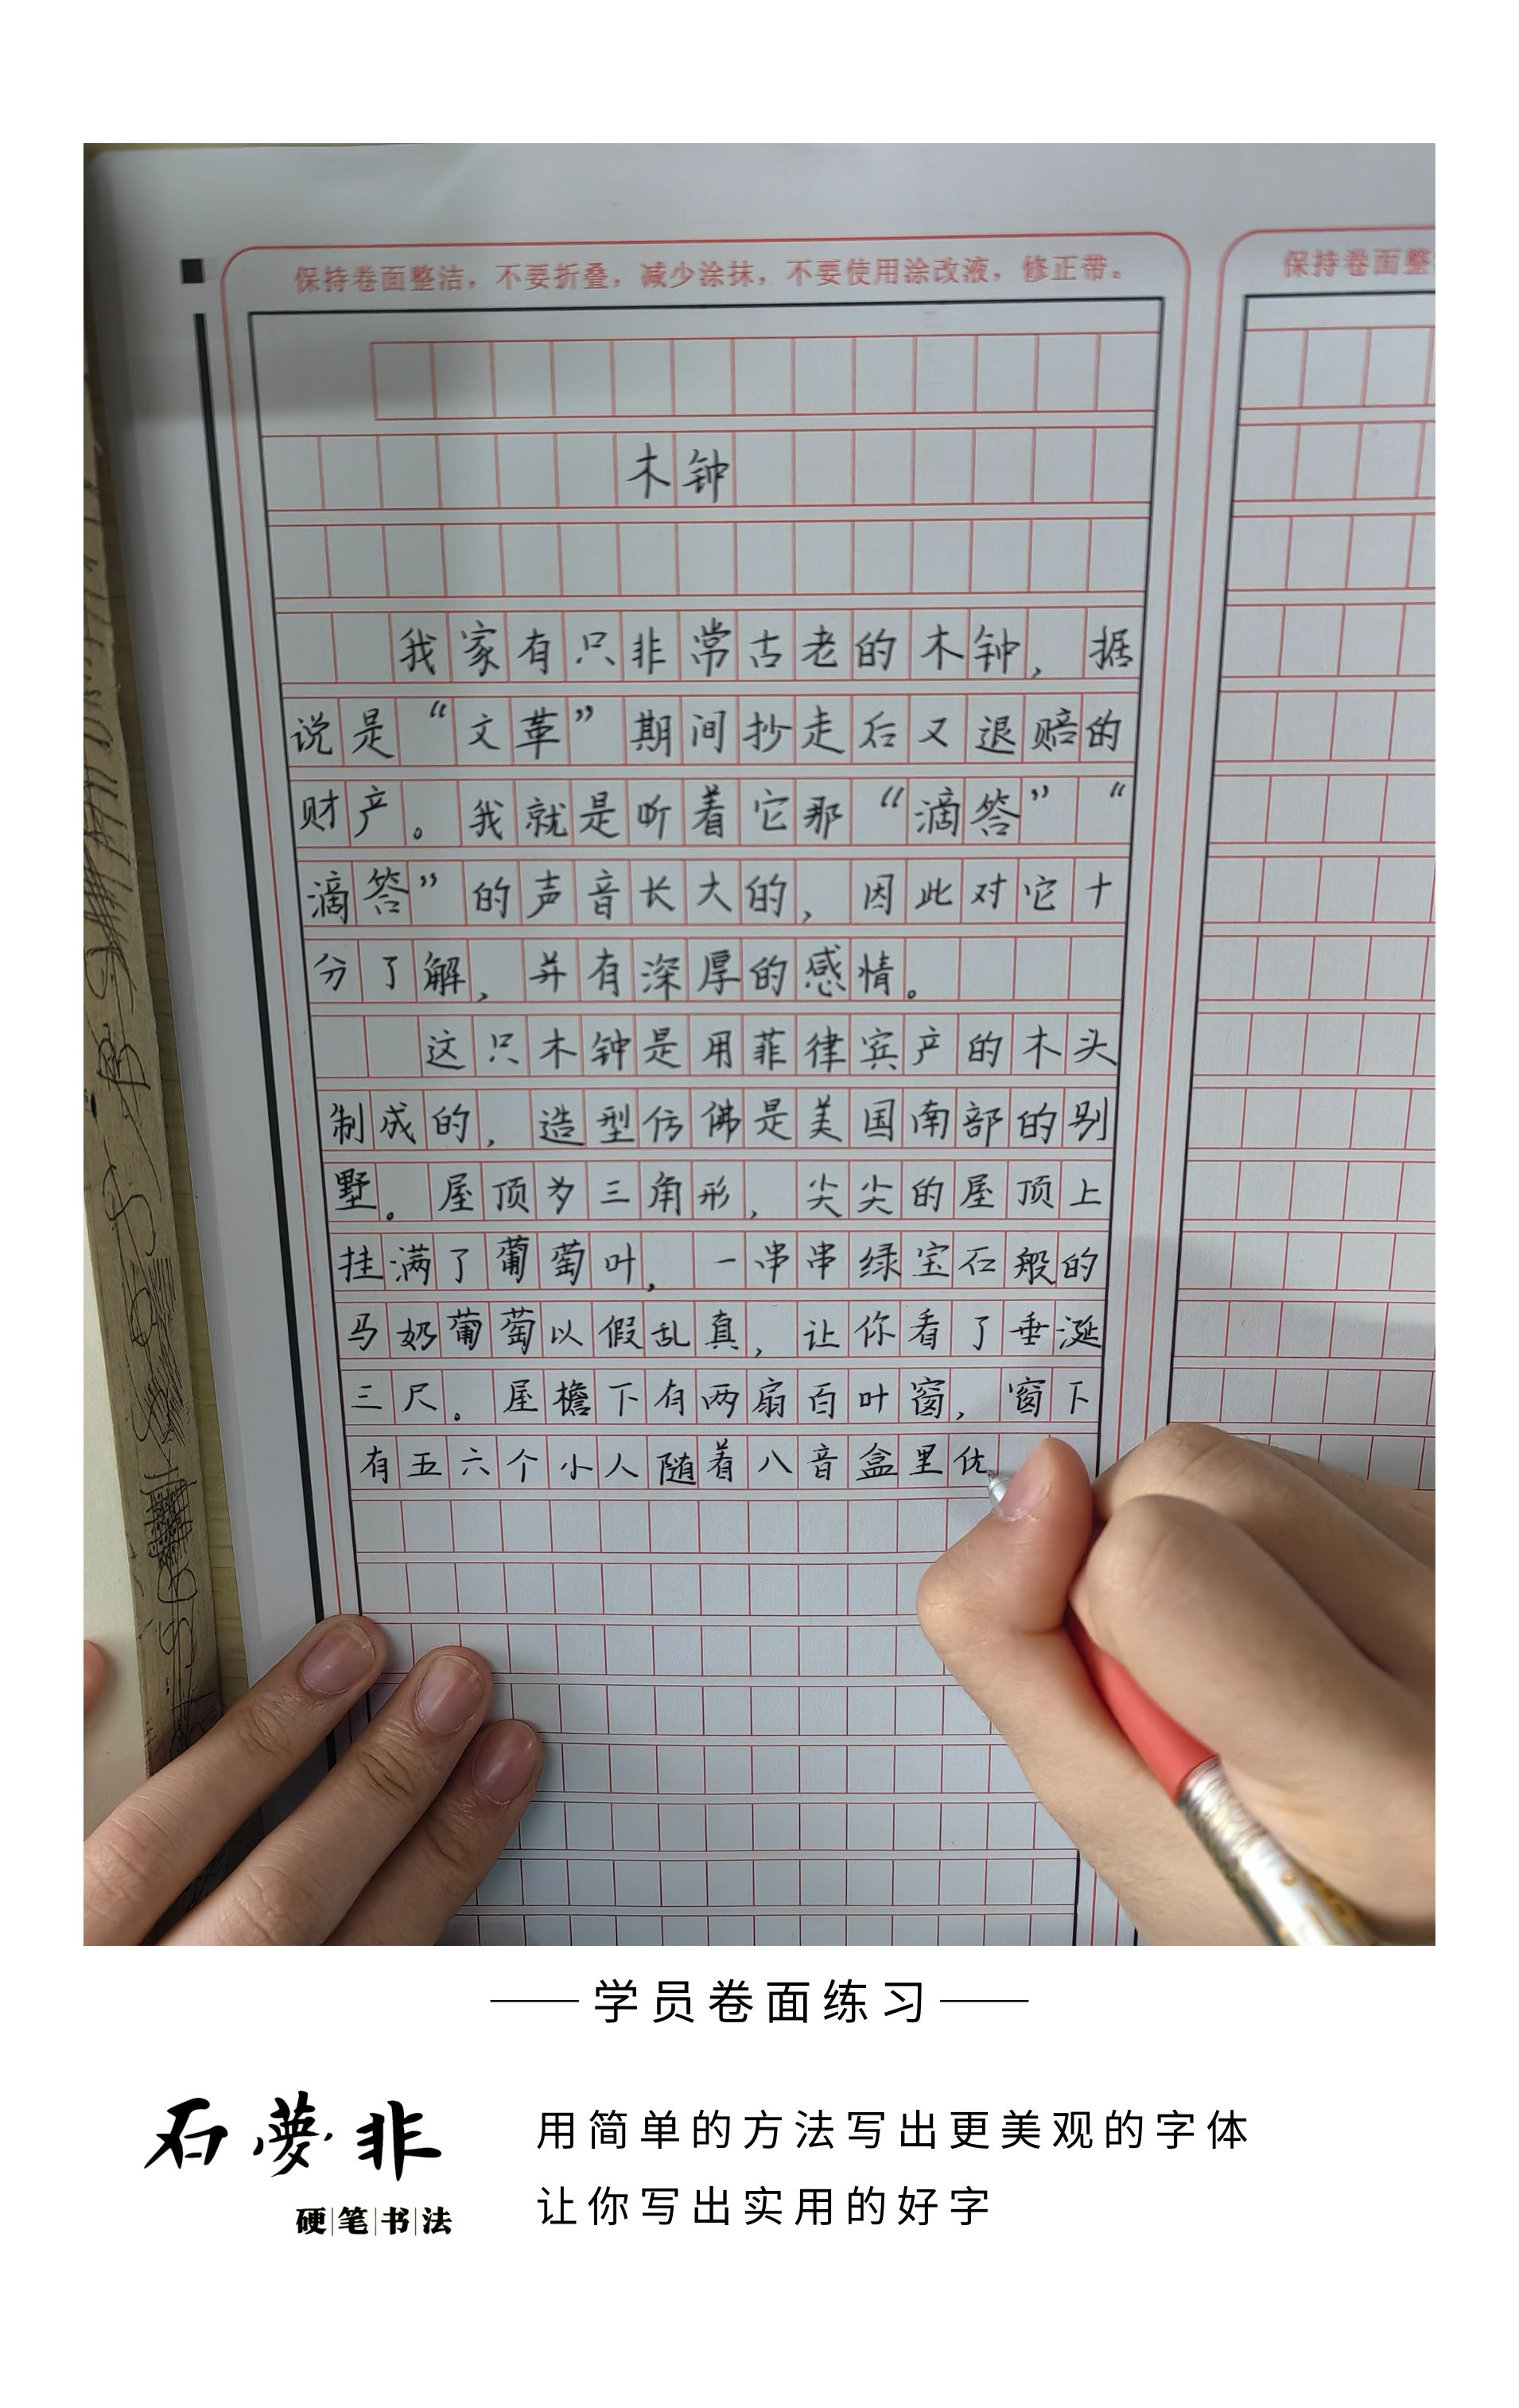 保持卷面整洁，不要折叠，减少涂抹，不要使用涂改液，修正带。
保持卷面整
木钟
我家有只非常古老的木钟，据
说是“文革”期间抄走后又退赔的
财产。我就是听着它那“滴答”“
滴答”的声音长大的，因此对它十
分了解，并有深厚的感情。
这只木钟是用菲律宾产的木头
制成的，造型仿佛是美国南部的别
墅。屋顶为三角形，尖尖的屋顶上
挂满了葡萄叶，一串串绿宝石般的
马奶葡萄以假乱真，让你看了垂涎
三尺。屋檐下有两扇百叶窗，窗下
有五六个小人随着八音盒里优
学员卷面练习
石夢非
硬笔书法
用简单的方法写出更美观的字体
让你写出实用的好字